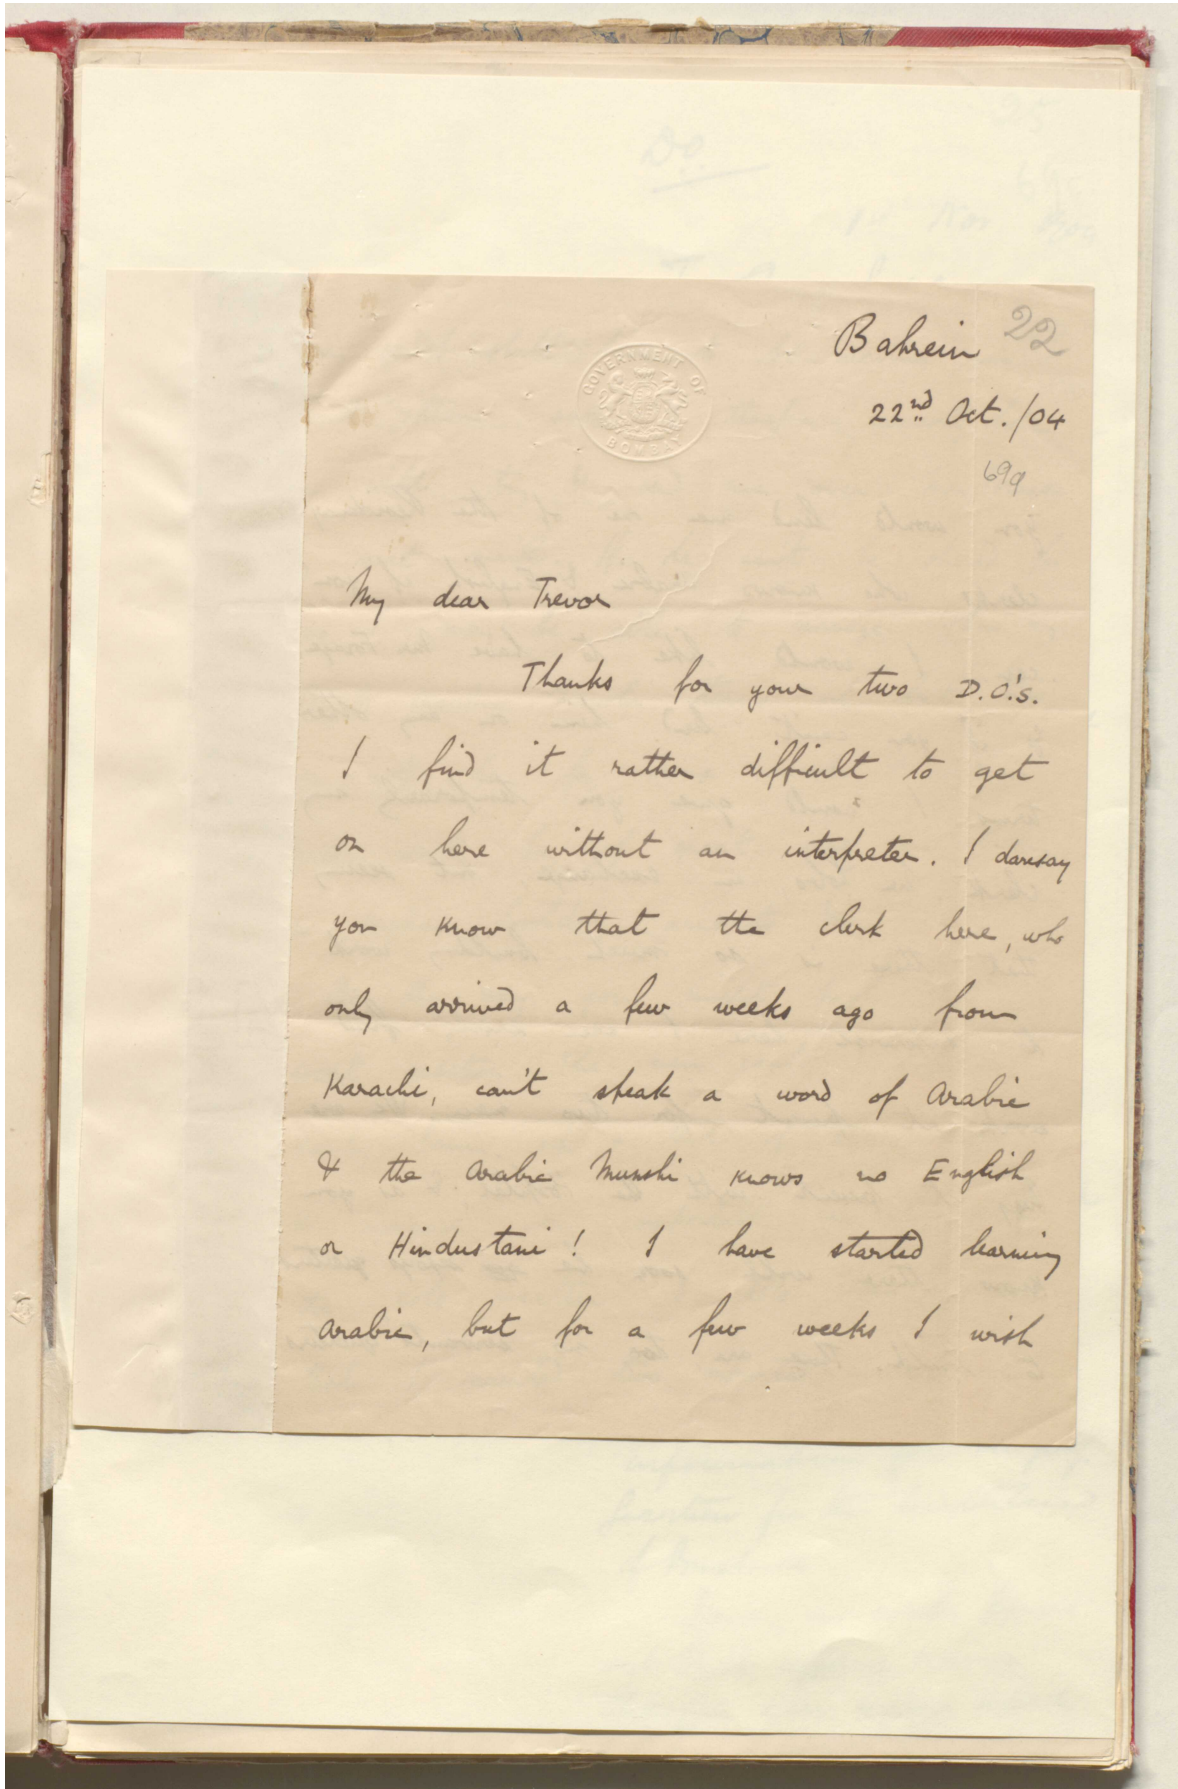 Bahrein 22
22nd Oct. /04
69a
GOVERNMENT OF
BOMBAY
My dear Trevor
Thanks for your two D.O.'s.
I find it rather difficult to get
on here without an interpreter. I daresay
you know that the clerk here, who
only arrived a few weeks ago from
Karachi, can't speak a word of Arabic
& the Arabic Munshi knows no English
or Hindustani! I have started learning
Arabic, but for a few weeks I wish